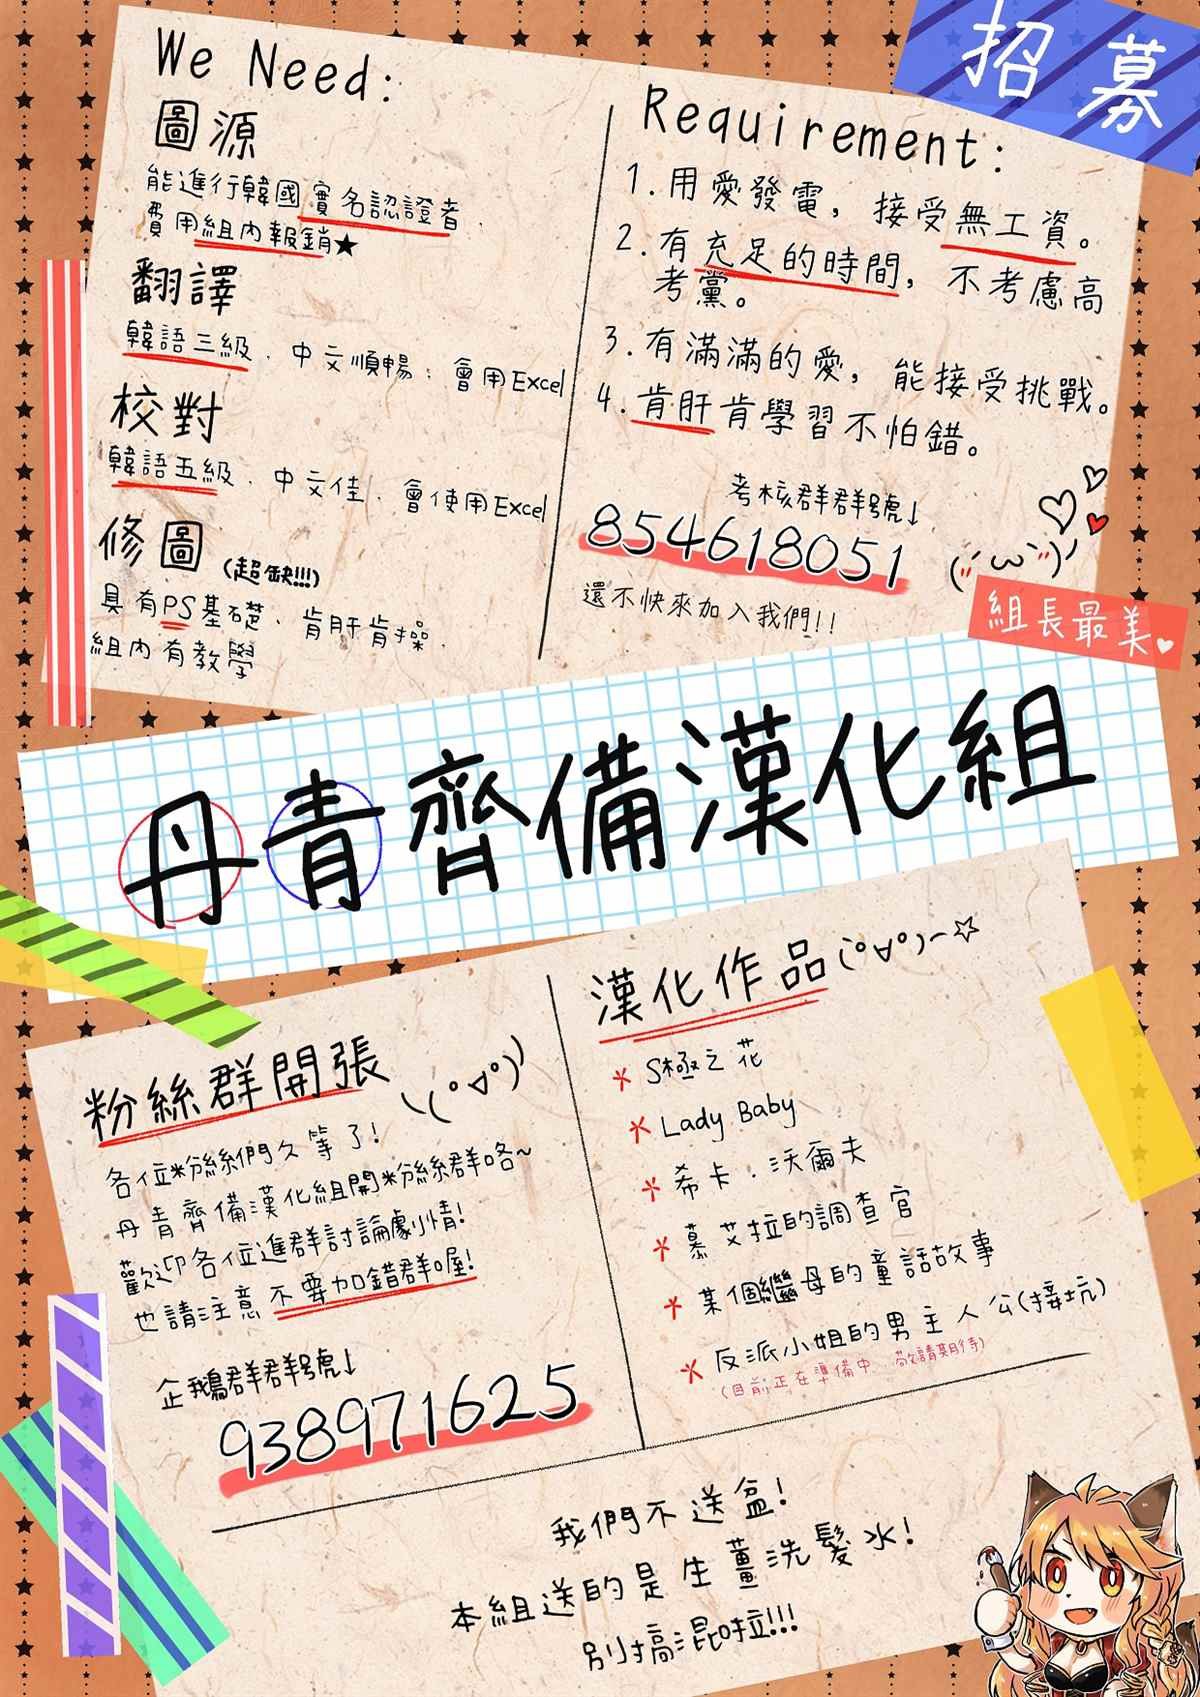 招募
We Need:
圖源
能進行韓國實名認證者.
費用組內報銷★
翻譯
韓語三級、中文順暢、會用Excel
校對
韓語五級、中文佳、會使用Excel
修圖(超缺!!!)
具有PS基礎、肯肝肯操.
組內有教學
Requirement:
1.用愛發電，接受無工資。
2.有充足的時間，不考慮高
考黨。
3.有滿滿的愛，能接受挑戰。
4.肯肝肯學習不怕錯。
考核群群號↓
854618051
還不快來加入我們!!
組長最美♥
丹青齊備漢化組
粉絲群開張
各位粉絲們久等了!
丹青齊備漢化組開粉絲群咯~
歡迎各位進群討論劇情!
也請注意不要加錯群喔!
企鵝群群號↓
938971625
漢化作品(°∀°)~☆
S極之花
Lady Baby
希卡·沃爾夫
慕艾拉的調查官
某個繼母的童話故事
反派小姐的男主人公(接坑)
(目前正在準備中、敬請期待)
我們不送盒!
本組送的是生薑洗髮水!
別搞混啦!!!